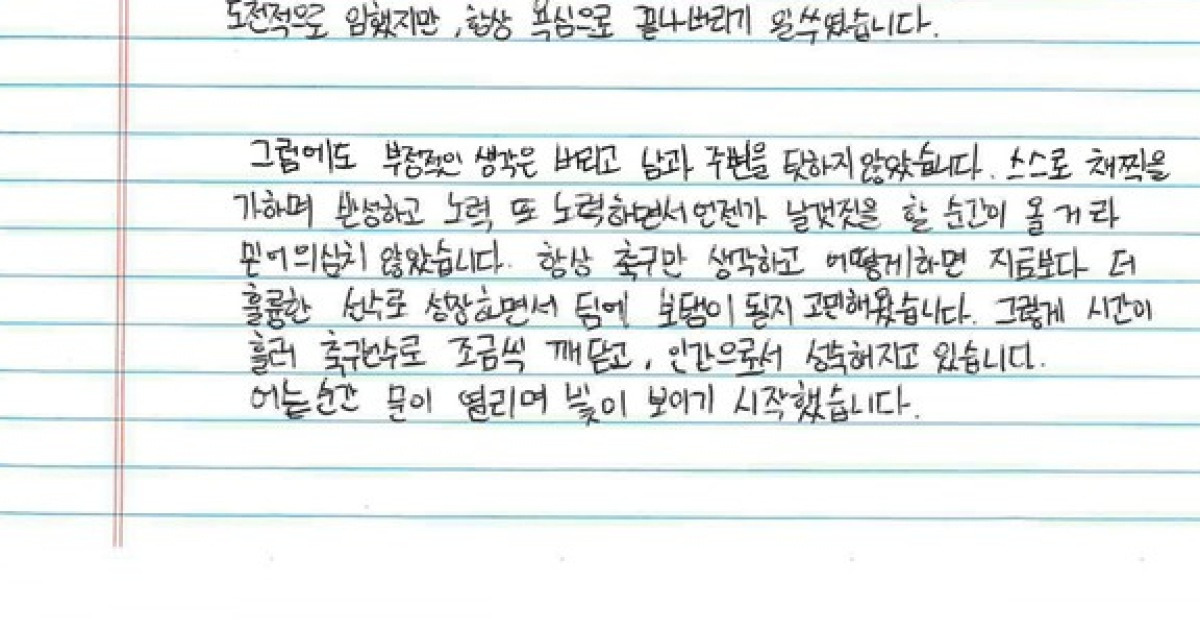 도전적으로 임했지만, 항상 욕심으로 끝나버리기 일쑤였습니다.
그럼에도 부정적인 생각은 버리고 남과 주변을 탓하지 않았습니다. 스스로 채찍을
가하며 반성하고 노력 또 노력하면서 언젠가 날갯짓을 할 순간이 올 거라
믿어 의심치 않았습니다. 항상 축구만 생각하고 어떻게하면 지금보다 더
훌륭한 선수로 성장하면서 팀에 보탬이 될지 고민해왔습니다. 그렇게 시간이
흘러 축구선수로 조금씩 깨닫고, 인간으로서 성숙해지고 있습니다.
어느순간 문이 열리며 빛이 보이기 시작했습니다.